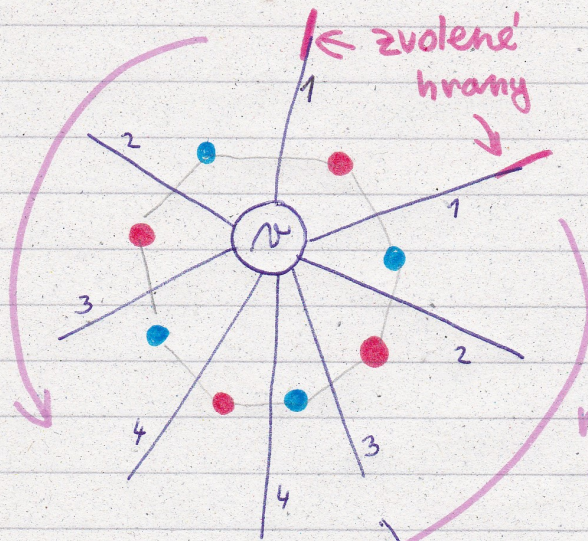 zvolené
hrany
1
1
2
2
v
3
3
4
4